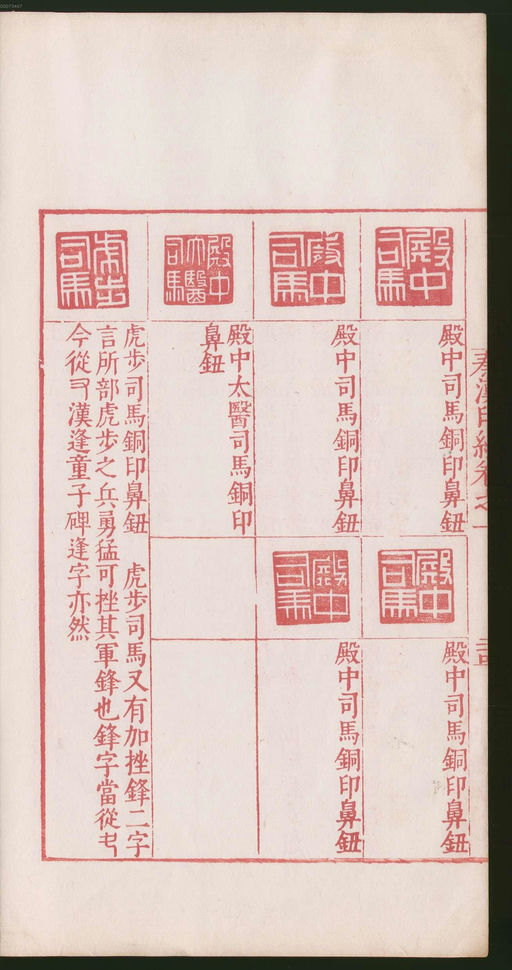 00073447
殿中
司馬
殿中司馬銅印鼻鈕
殿中
司馬
殿中司馬銅印鼻鈕
殿中
司馬
殿中司馬銅印鼻鈕
殿中
司馬
殿中司馬銅印鼻鈕
殿中
大醫
司馬
殿中太醫司馬銅印
鼻鈕
虎步
司馬
虎步司馬銅印鼻鈕 虎步司馬又有加挫鋒二字
言所部虎步之兵勇猛可挫其軍鋒也鋒字當從
今從漢逢童子碑逢字亦然